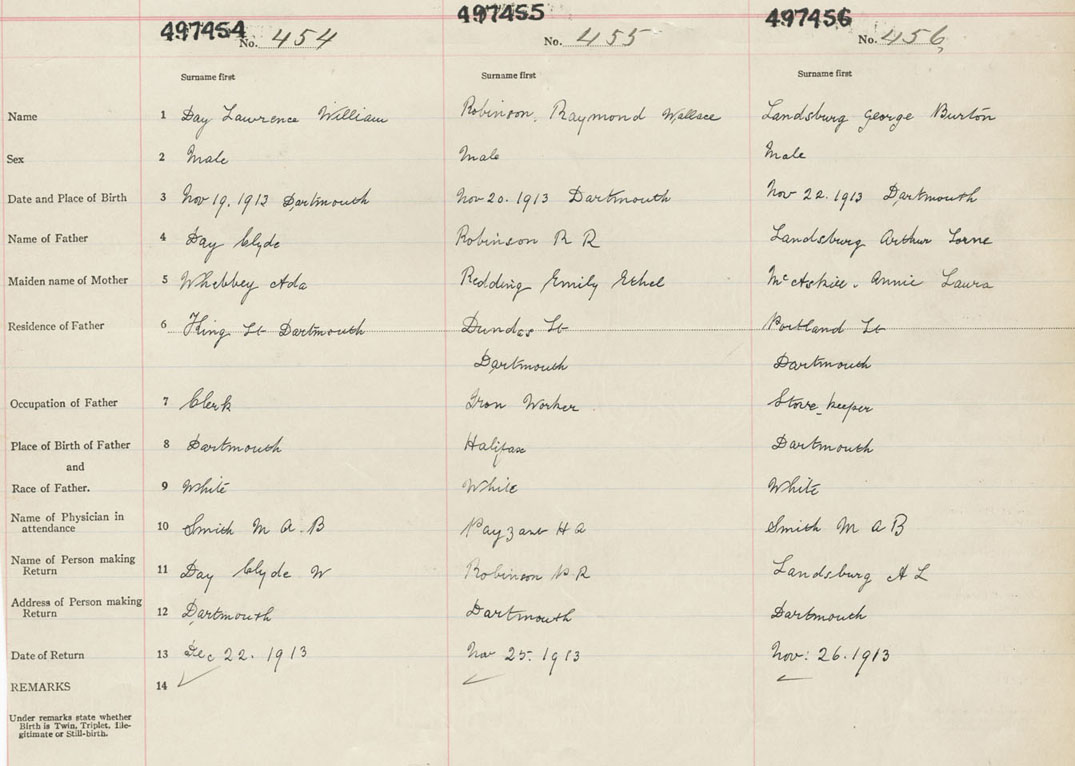 497454 No. 454 497455 No. 455 497456 No. 456
Surname first Surname first Surname first
Name 1 Day Lawrence William Robinson, Raymond Wallace Landsburg George Burton
Sex 2 Male Male Male
Date and Place of Birth 3 Nov 19. 1913 Dartmouth Nov 20. 1913 Dartmouth Nov 22. 1913 Dartmouth
Name of Father 4 Day Clyde Robinson R R Landsburg Arthur Lorne
Maiden name of Mother 5 Whebbey Ada Redding Emily Ethel McAskill. Annie Laura
Residence of Father 6 King St Dartmouth Dundas St Portland St
Dartmouth Dartmouth
Occupation of Father 7 Clerk Iron Worker Store keeper
Place of Birth of Father 8 Dartmouth Halifax Dartmouth
and
Race of Father. 9 White White White
Name of Physician in
attendance 10 Smith M A. B Payzant H A Smith M A B
Name of Person making
Return 11 Day Clyde W Robinson R R Landsburg A L
Address of Person making
Return 12 Dartmouth Dartmouth Dartmouth
Date of Return 13 Dec 22. 1913 Nov 25. 1913 Nov: 26. 1913
REMARKS 14
Under remarks state whether
Birth is Twin, Triplet, Ille-
gitimate or Still-birth.